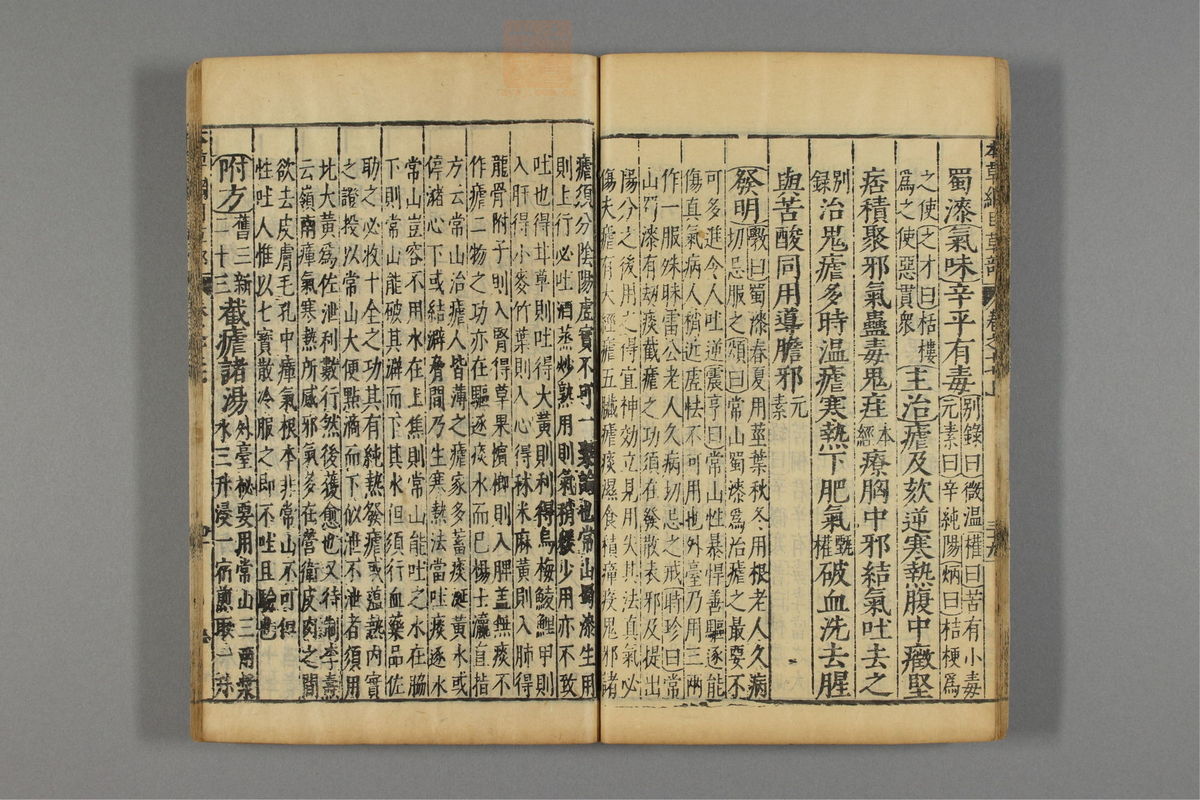 蜀漆氣味辛平有毒别錄曰微温權曰苦有小毒元素曰辛純陽炳曰桔梗爲
之使之才曰栝樓爲之使惡貫衆主治瘧及欬逆寒熱腹中癥堅
痞積聚邪氣蠱毒鬼疰本經療胸中邪結氣吐去之
别錄治鬼瘧多時温瘧寒熱下肥氣甄權破血洗去腥
與苦酸同用導膽邪元素
發明斅曰蜀漆春夏用莖葉秋冬用根老人久病
切忌服之頌曰常山蜀漆爲治瘧之最要不
可多進令人吐逆震亨曰常山性暴悍善驅逐能
傷真氣病人稍近虛怯不可用也外臺乃用三兩
作一服殊昧雷公老人久病切忌之戒時珍曰常
山蜀漆有劫痰截瘧之功須在發散表邪及提出
陽分之後用之得宜神効立見用失其法真氣必
傷夫瘧有六經瘧五臟瘧痰濕食積瘴疫鬼邪諸
瘧須分陰陽虛實不可一槩論也常山蜀漆生用
則上行必吐酒蒸炒熟用則氣稍緩少用亦不致
吐也得甘草則吐得大黃則利得烏梅鯪鯉甲則
入肝得小麥竹葉則入心得秫米麻黃則入肺得
龍骨附子則入腎得草果檳榔則入脾盖無痰不
作瘧二物之功亦在驅逐痰水而已楊士瀛直指
方云常山治瘧人皆薄之瘧家多蓄痰涎黃水或
停瀦心下或結澼脅間乃生寒熱法當吐痰逐水
常山豈容不用水在上焦則常山能吐之水在脇
下則常山能破其澼而下其水但須行血藥品佐
助之必收十全之功其有純熱發瘧或蘊熱内實
之證投以常山大便點滴而下似泄不泄者須用
北大黃爲佐泄利數行然後獲愈也又待制李燾
云嶺南瘴氣寒熱所感邪氣多在營衛皮肉之間
欲去皮膚毛孔中瘴氣根本非常山不可但
性吐人惟以七寶散冷服之即不吐且驗也
附方舊三新二十三截瘧諸湯外臺秘要用常山三兩漿
水三升浸一宿煎取一升